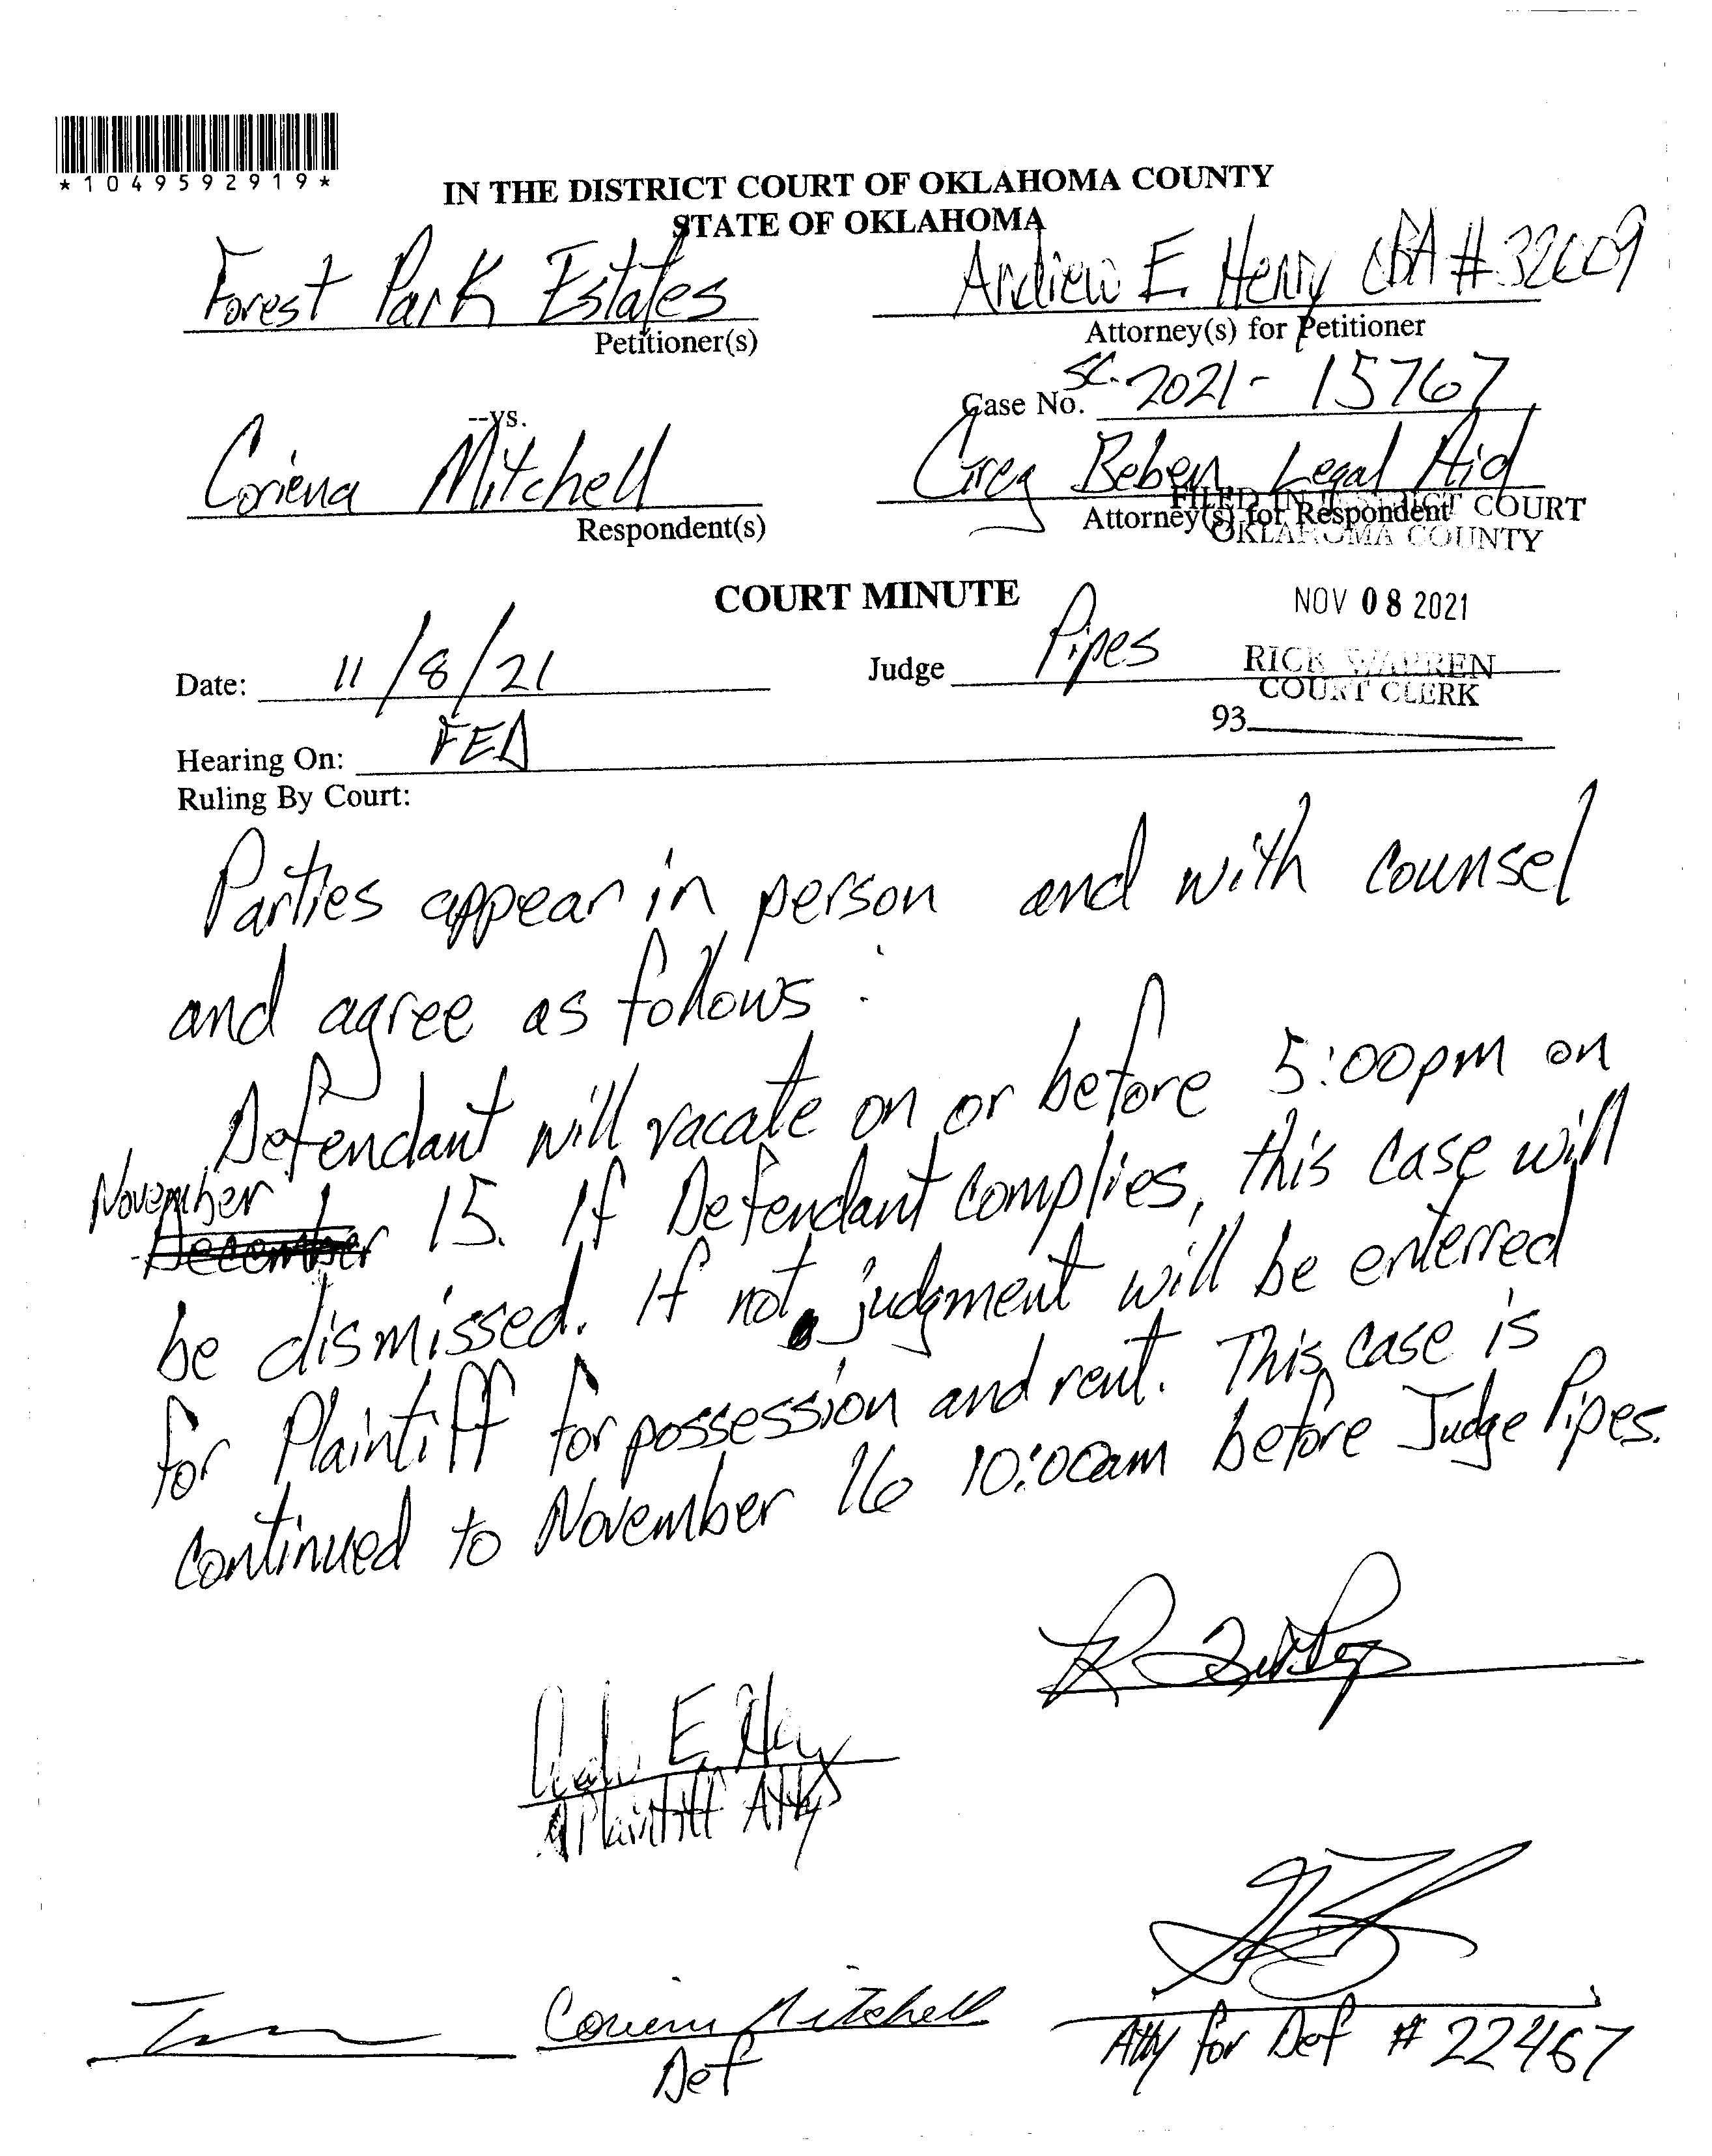 *1049592919*
IN THE DISTRICT COURT OF OKLAHOMA COUNTY
STATE OF OKLAHOMA
Forest Park Estates
Petitioner(s)
Andrew E. Henry OBA # 32009
Attorney(s) for Petitioner
Case No. SC-2021-15767
--vs.
Coriena Mitchell
Respondent(s)
Greg Beben, Legal Aid
Attorney(s) for Respondent
FILED IN DISTRICT COURT
OKLAHOMA COUNTY
COURT MINUTE
NOV 08 2021
Date: 11/8/21
Judge Pipes
RICK WARREN
COURT CLERK
93
Hearing On: FED
Ruling By Court:
Parties appear in person and with counsel
and agree as follows:
Defendant will vacate on or before 5:00pm on
November
December 15. If Defendant complies, this case will
be dismissed. If not, judgment will be enterred
for Plaintiff for possession and rent. This case is
continued to November 16 10:00am before Judge Pipes.
E. Hen
Plaintiff Atty
Mitchell
Def
Atty for Def # 22467